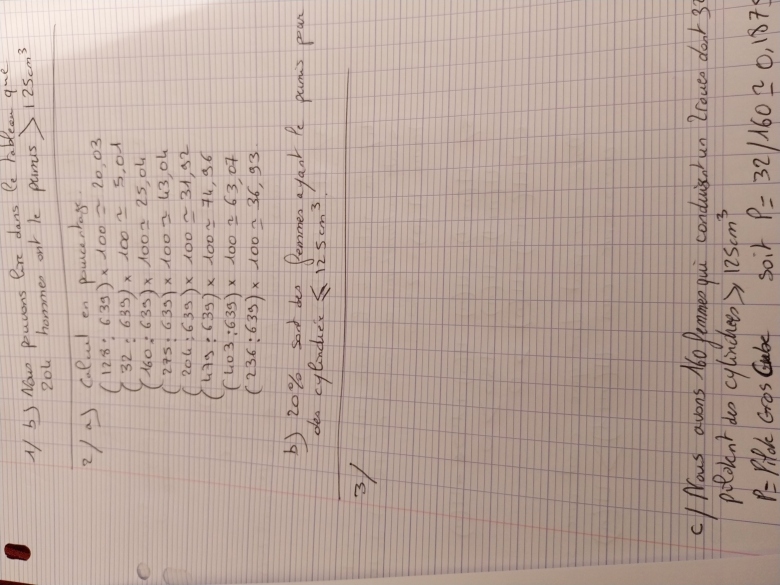 1/ b) Nous pouvons lire dans le tableau que
204 hommes ont le permis > 125cm³
2/ a) Calcul en pourcentage.
(128 : 639) × 100 ≃ 20,03
(32 : 639) × 100 ≃ 5,01
(160 : 639) × 100 ≃ 25,04
(275 : 639) × 100 ≃ 43,04
(204 : 639) × 100 ≃ 31,92
(479 : 639) × 100 ≃ 74,96
(403 : 639) × 100 ≃ 63,07
(236 : 639) × 100 ≃ 36,93
b) 20% sont des femmes ayant le permis pour
des cylindrée ⩽ 125cm³.
3/
c/ Nous avons 160 femmes qui conduisent un 2roues dont 32
pilotent des cylindrées > 125cm³
P= Pilote Gros Cube soit P= 32/160 ≃ 0,1875